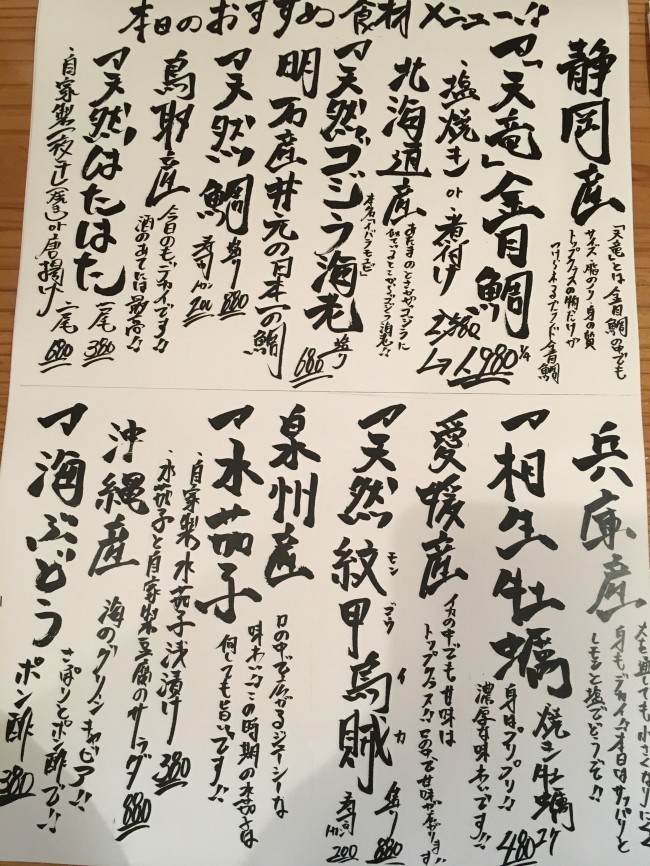 本日のおすすめ食材メニュー!!
静岡産
「天竜」とは金目鯛の中でも
サイズ、脂のり、身の質
トップクラスの物だけが
つけられるブランド金目鯛
「天竜」金目鯛
・塩焼き or 煮付け
2,980
→1,980
北海道産
あたまのとさかがゴジラに
似てることからゴジラ海老!!
本名「イバラモエビ」
天然ゴジラ海老 造り 680
明石産 井元の日本一の鯛
天然鯛 造り 880
寿司 1カン 200
鳥取産
今日のもデカイです!!
酒のあてには最高!!
天然はたはた 一尾 380
・自家製一夜干し(焼き) or 唐揚げ 二尾 680
兵庫産
火を通しても小さくなりにくく
身もデカイ!!本日はサッパリと
レモンと塩でどうぞ!!
相生牡蠣 焼き牡蠣 2ケ 480
身はプリプリ!!
濃厚な味わいです!!
愛媛産
イカの中でも甘味は
トップクラス!!口の中で甘味が広がります!!
天然紋甲烏賊 造り 880
モンゴウイカ
寿司 1カン 200
泉州産
口の中で広がるジューシーな
味わい!!この時期の水茄子は
何しても旨いです!!
水茄子
・自家製水茄子浅漬け 380
・水茄子と自家製豆腐のサラダ 880
沖縄産
海のグリーンキャビア!!
さっぱりとポン酢で!!
海ぶどう ポン酢 380